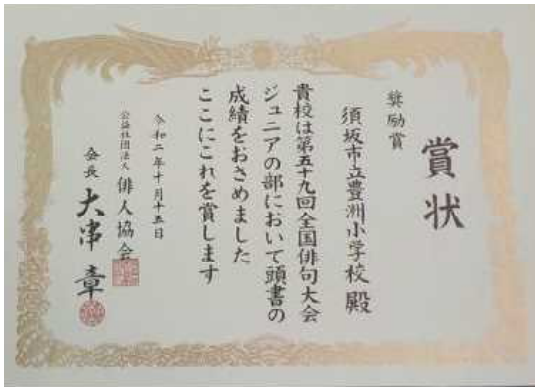 賞状
奨励賞
須坂市立豊洲小学校 殿
貴校は第五十九回全国俳句大会
ジュニアの部において頭書の
成績をおさめました
ここにこれを賞します
令和二年十月十五日
公益社団法人 俳人協会
会長 大串 章